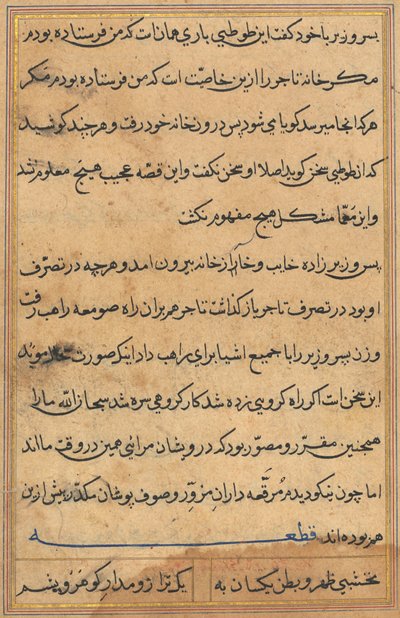 پسر وزیر با خود گفت این طوطی باری همان است که من فرستاده بودم
مگر خانه تاجر را ازین خاصیّت است که من فرستاده بودم مگر
هر که انجا میرسد کویا می شود پس درون خانه خود رفت و هر چند کوشید
که از طوطی سخن کوید اصلا او سخن نکفت و این قصّه عجیب هیچ معلوم نشد
و این معمّا مشکل هیچ مفهوم نکشت
پس وزیر زاده خایب و خاسر از خانه بیرون امد و هر چه در تصرّف
او بود در تصرف تاجر باز کذاشت تاجر هم بران راه صومعه راهب رفت
و زن پسر وزیر را با جمیع اشیا برای راهب داد اینک صورت
این سخن است اکر راه کروهی زده شد کار کروهی سره شد سبحان الله ما را
همچنین مقرّر و مصوّر بود که درویشان مرائی همین در وقت ما اند
اما چون نیکو دیدم مرقّعه داران مزوّر و صوف پوشان مکدّر پیش ازین
هم بوده اند قطعه
نخشبی ظهر و بطن یکسان به یک ترا زو مدار کو هر و پشم